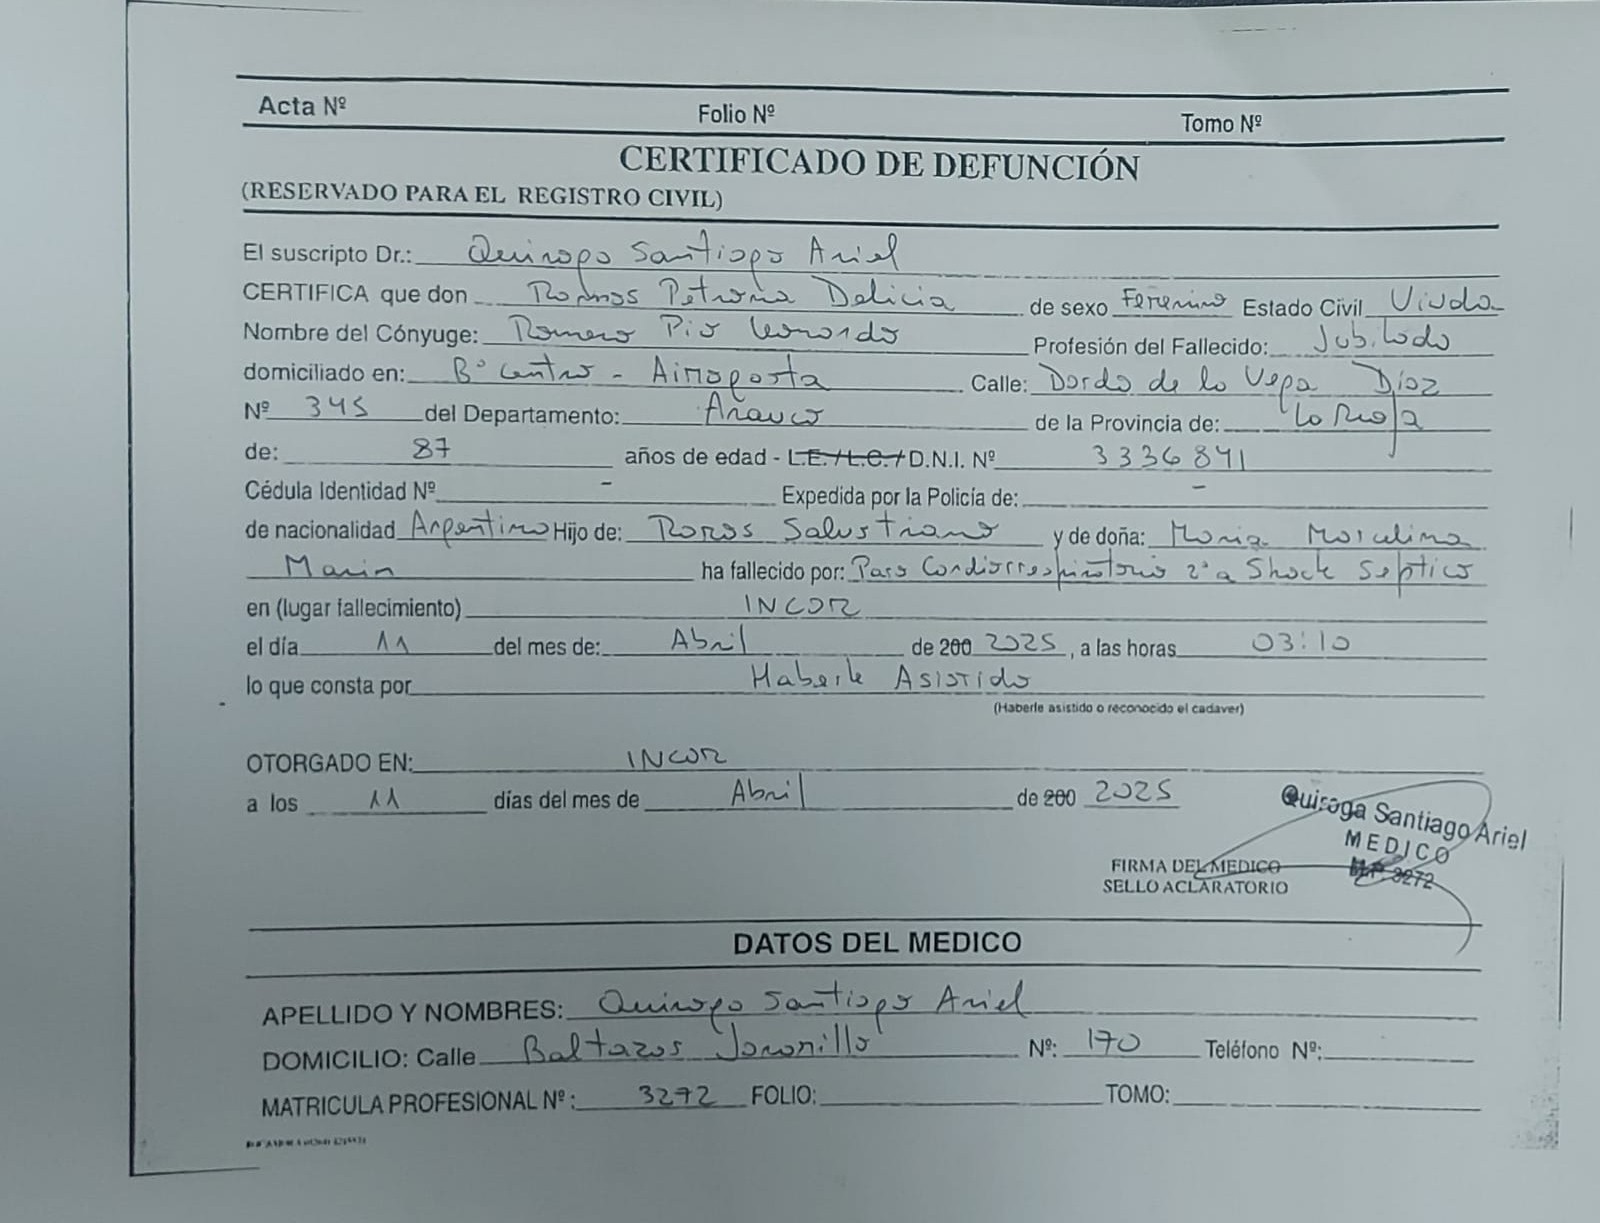 Acta Nº Folio Nº Tomo Nº
CERTIFICADO DE DEFUNCIÓN
(RESERVADO PARA EL REGISTRO CIVIL)
El suscripto Dr.: Quiroga Santiago Ariel
CERTIFICA que don Petrona Delicia de sexo Femenino Estado Civil Viuda
Nombre del Cónyuge: Romero Pio Leonardo Profesión del Fallecido: Jubilado
domiciliado en: Bº Centro - Aimogasta Calle: Dardo de la Vega Díaz
Nº 345 del Departamento: Arauco de la Provincia de: La Rioja
de: 87 años de edad - L.E. / L.C. / D.N.I. Nº 3336841
Cédula Identidad Nº - Expedida por la Policía de: -
de nacionalidad Argentino Hijo de: Salustiano y de doña: Maria Marcelina
Marin ha fallecido por: Paro Cardiorrespiratorio 2º a Shock Septico
en (lugar fallecimiento) INCOR
el día 11 del mes de: Abril de 200 2025, a las horas 03:10
lo que consta por Haberle Asistido
(Haberle asistido o reconocido el cadaver)
OTORGADO EN: INCOR
a los 11 días del mes de Abril de 200 2025
Quiroga Santiago Ariel
MEDICO
M.P. 3272
FIRMA DEL MEDICO
SELLO ACLARATORIO
DATOS DEL MEDICO
APELLIDO Y NOMBRES: Quiroga Santiago Ariel
DOMICILIO: Calle Baltazar Jaramillo Nº: 170 Teléfono Nº:
MATRICULA PROFESIONAL Nº: 3272 FOLIO: TOMO: